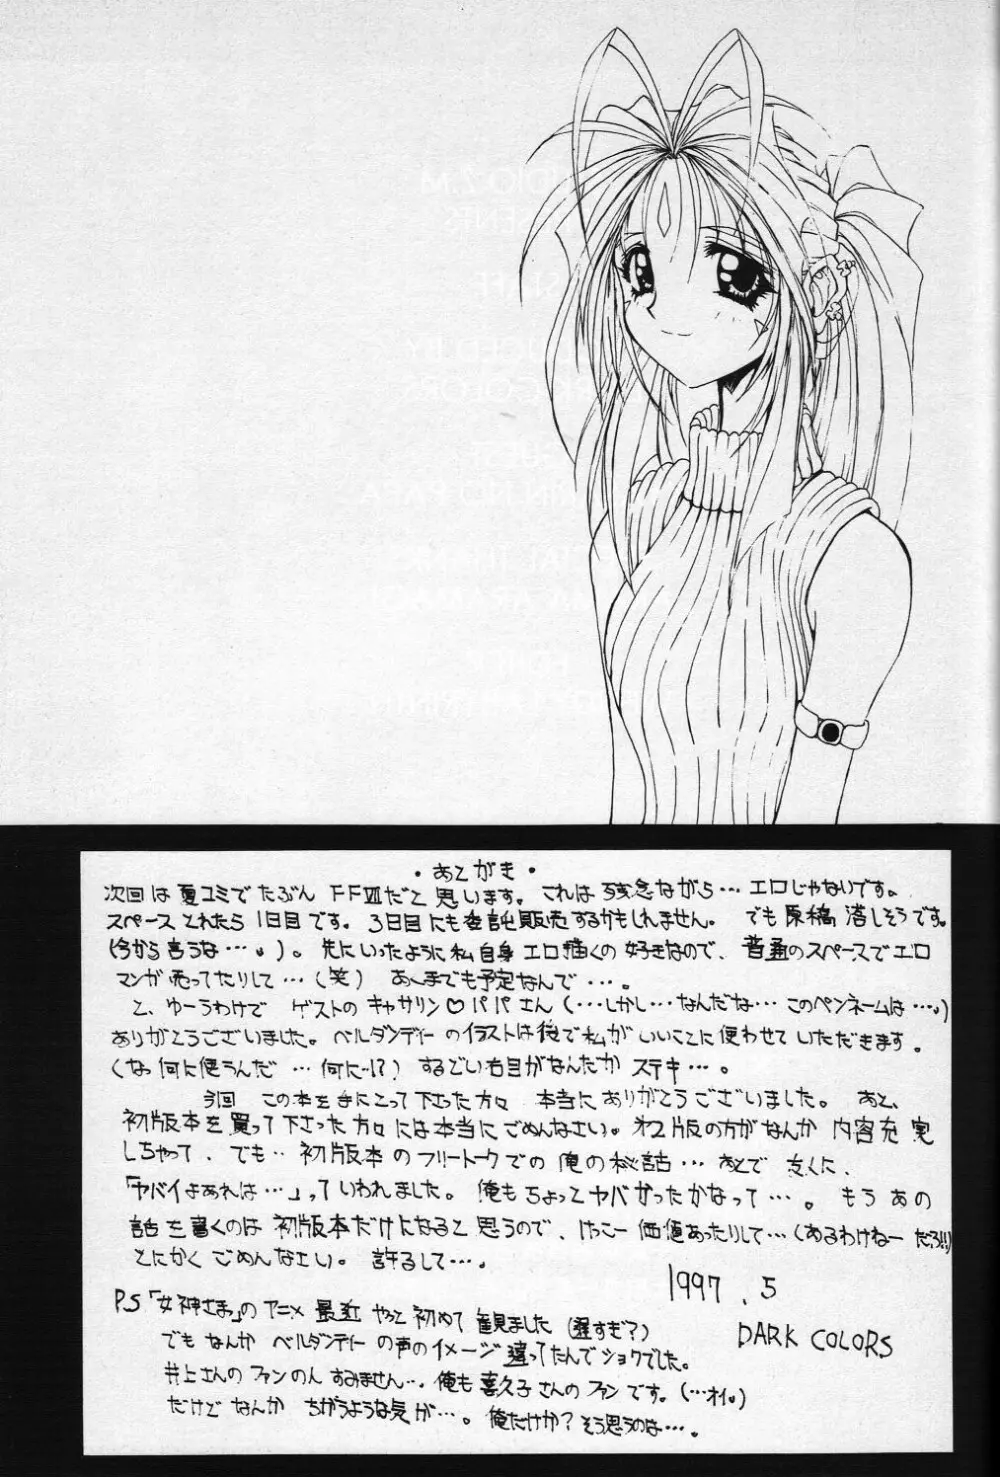 ・あとがき・
次回は夏コミでたぶん FFⅦだと思います。これは残念ながら…エロじゃないです。
スペースとれたら1日目です。3日目にも委託販売するかもしれません。でも原稿落しそうです。
(今から言うな…。)。先にいったように私自身エロ描くの好きなので、普通のスペースでエロ
マンガ売ってたりして…(笑) あくまでも予定なんで…。
と、ゆーうわけで ゲストのキャサリン♡パパさん(…しかし…なんだな…このペンネームは…。)
ありがとうございました。ベルダンディーのイラストは後で私がいいことに使わせていただきます。
(なっ何に使うんだ…何に…!?) するどい右目がなんだか ステキ…。
今回 この本を手にとって下さった方々 本当にありがとうございました。あと、
初版本を買って下さった方々には本当にごめんなさい。オフ版の方がなんか 内容充実
しちゃって、でも… 初版本のフリートークでの俺の秘話…あとで友人に、
「ヤバイよあれは…」っていわれました。俺もちょっとヤバかったかなって…。もうあの
話を書くのは初版本だけになると思うので、けっこー価値あったりして…(あるわけねーだろ!!)
とにかくごめんなさい。許るして…。
1997.5
P.S「女神さまっ」のアニメ最近やっと初めて観ました(遅すぎ?)
DARK COLORS
でもなんか ベルダンディーの声のイメージ違ってたんでショクでした。
井上さんのファンのん すみません…。俺も喜久子さんのファンです。(…オイ。)
だけど なんか ちがうような気が…。俺だけか?そう思うのは…。